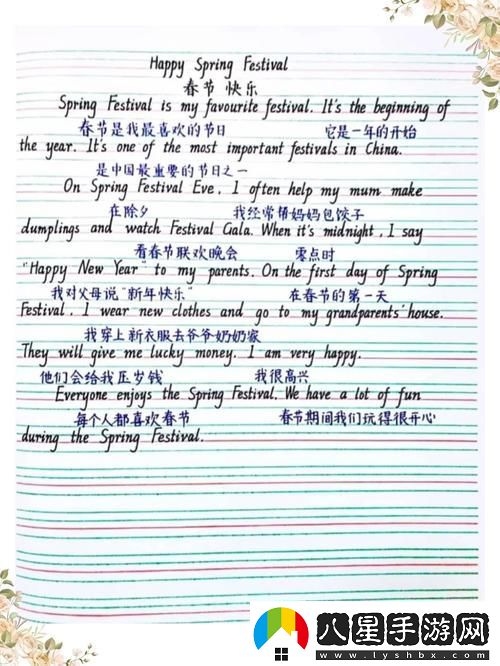 Happy Spring Festival
春节 快乐
Spring Festival is my favourite festival. It's the beginning of
春节是我最喜欢的节日 它是一年的开始
the year. It's one of the most important festivals in China.
是中国最重要的节日之一
On Spring Festival Eve, I often help my mum make
在除夕 我经常帮妈妈包饺子
dumplings and watch Festival Gala. When it's midnight, I say
看春节联欢晚会 零点时
"Happy New Year" to my parents. On the first day of Spring
我对父母说"新年快乐" 在春节的第一天
Festival, I wear new clothes and go to my grandparents' house.
我穿上新衣服去爷爷奶奶家
They will give me lucky money. I am very happy.
他们会给我压岁钱 我很高兴
Everyone enjoys the Spring Festival. We have a lot of fun
每个人都喜欢春节 春节期间我们玩得很开心
during the Spring Festival.
八星手游网
www.lyshbx.com